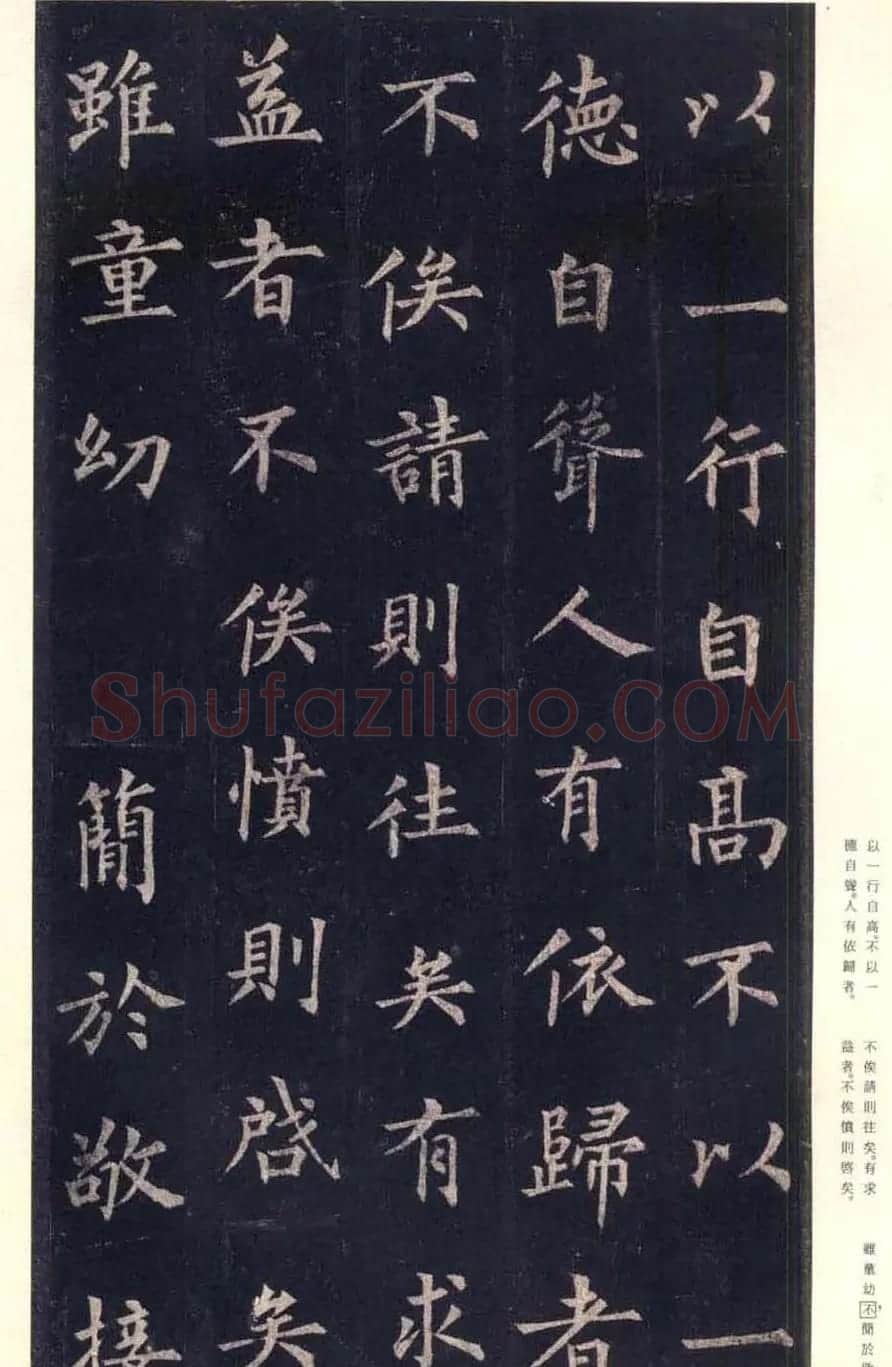 以一行自高不以一
德自聲人有依歸者
不俟請則往矣有求
益者不俟憤則啓矣
雖童幼簡於敬接
Shufaziliao.COM
以一行自高。不以一
德自聲。人有依歸者。
不俟請則往矣。有求
益者。不俟憤則啓矣。
雖童幼，不簡於